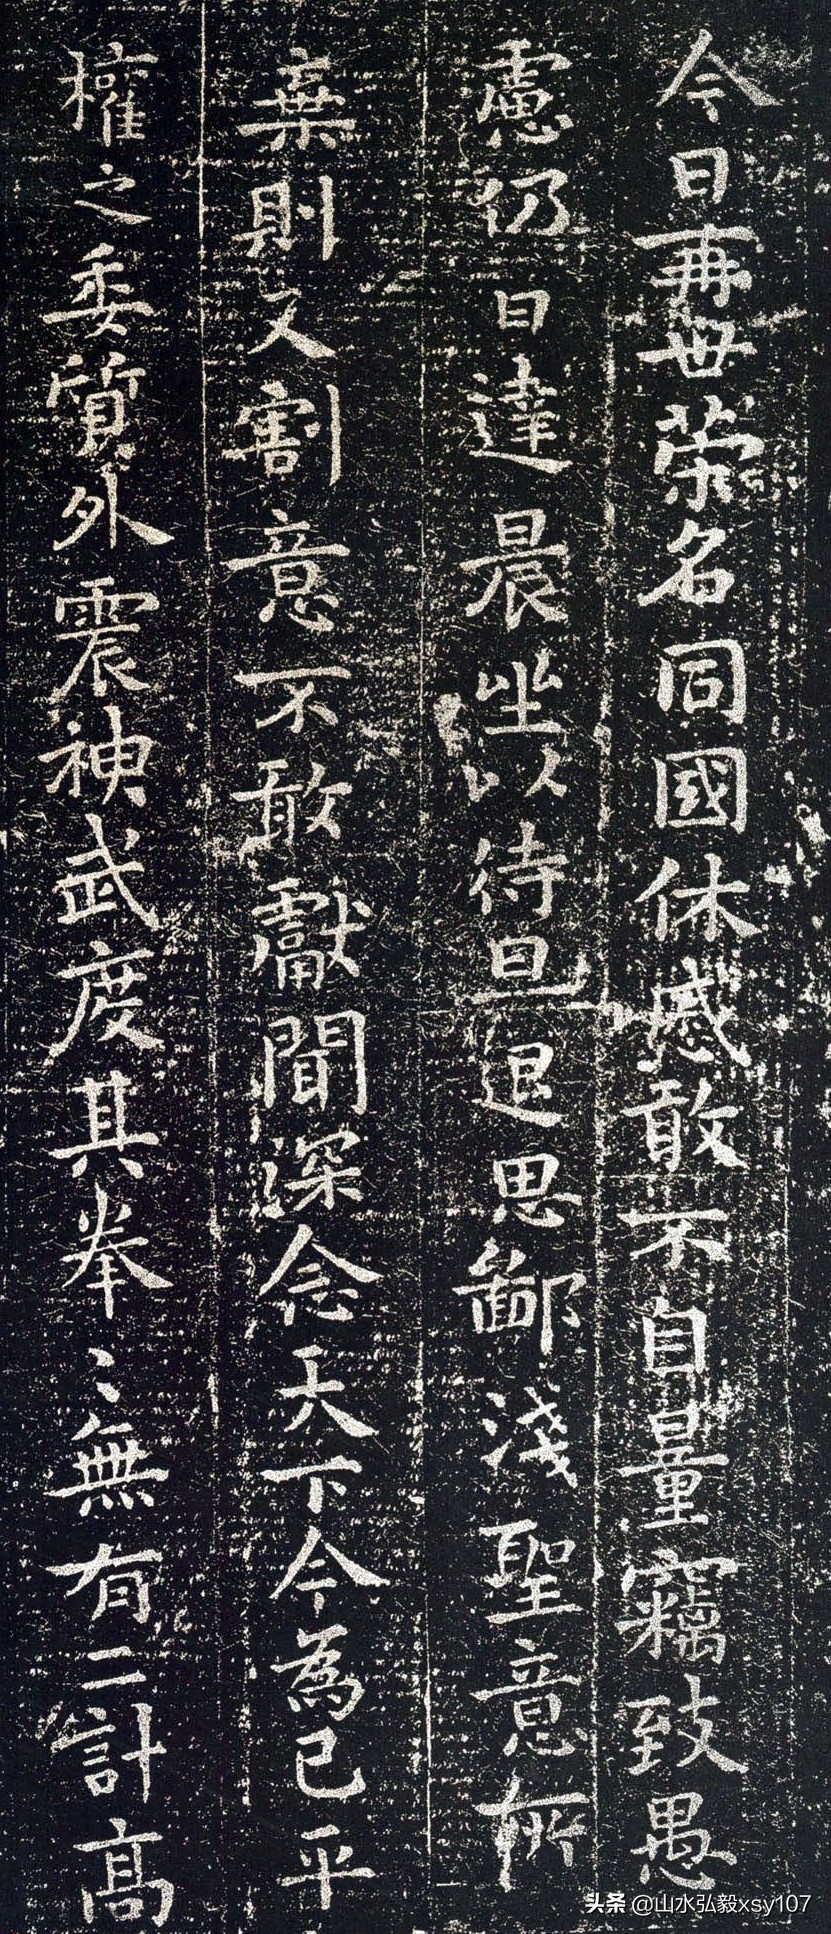 今日再世荣名同國休慼敢不自量竊致愚
慮仍日達晨坐以待旦退思鄙淺聖意所
棄則又割意不敢獻聞深念天下今為已平
權之委質外震神武度其拳〻無有二計高
头条 @山水弘毅xsy107